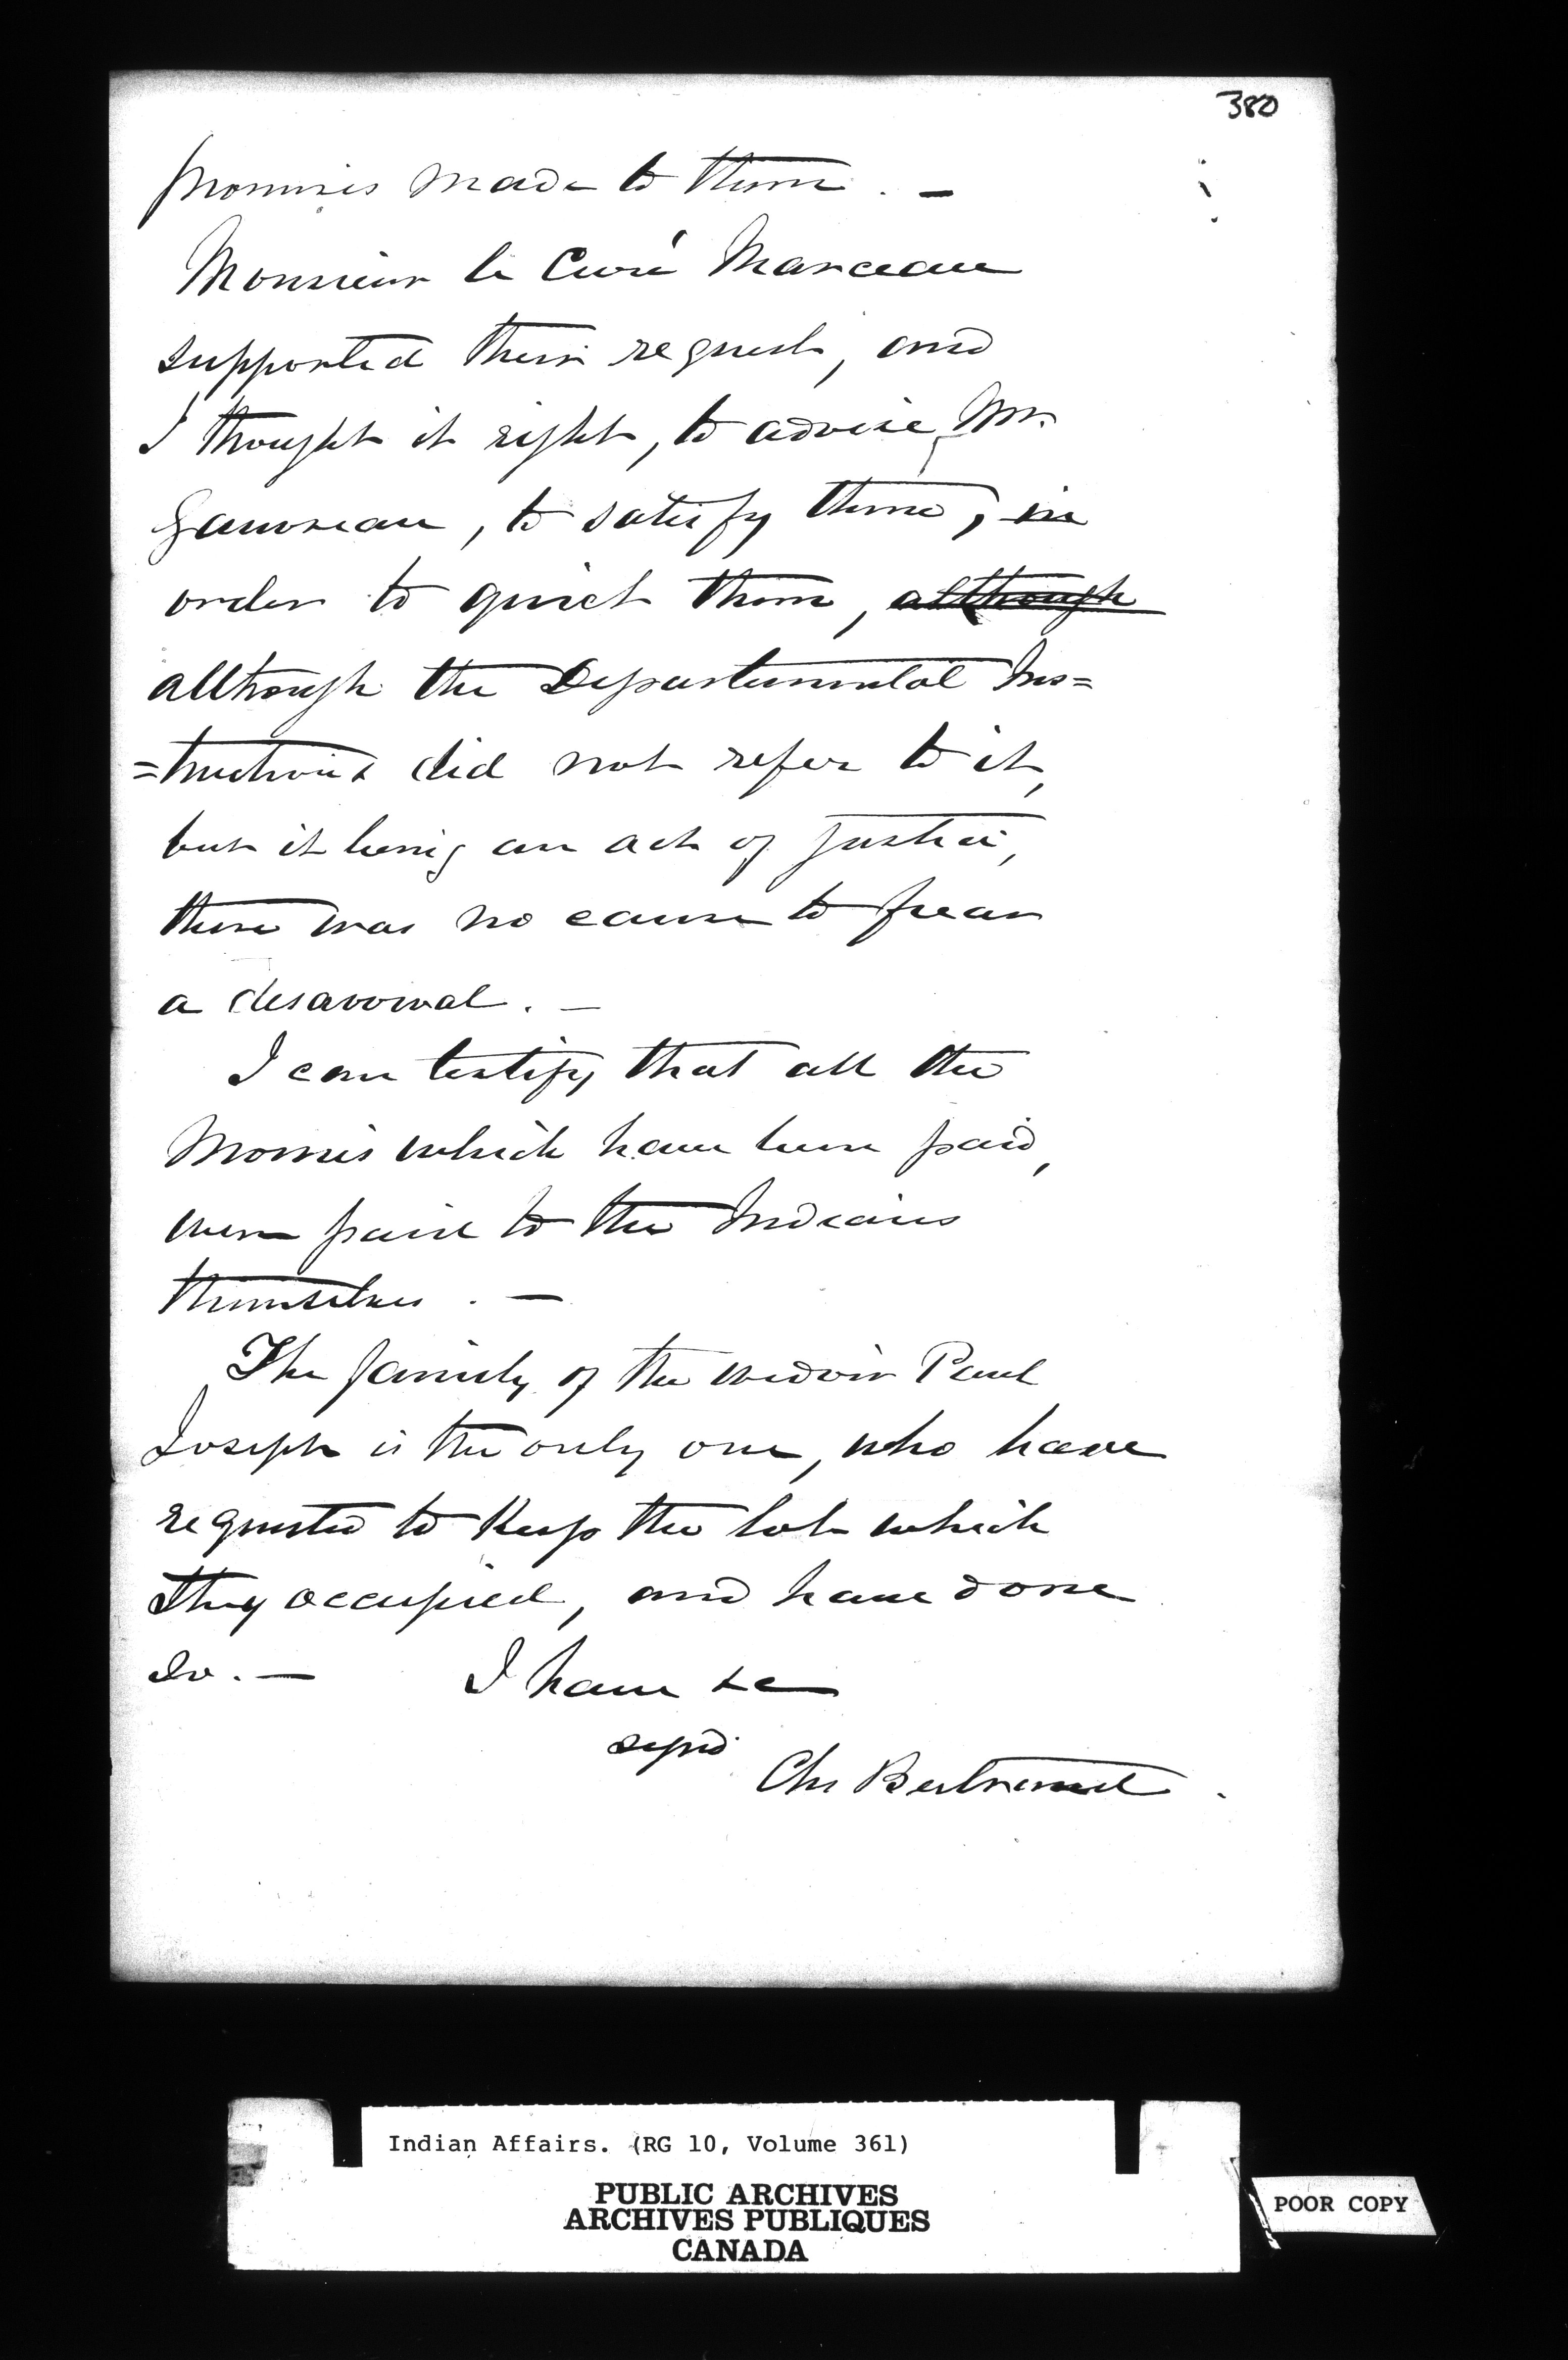 380
promises made to them. —
Monsieur le Curé Marceau
supported their request, and
I thought it right, to advise Mr.
Gauvreau, to satisfy them, in
order to quiet them, although
although the Departmental Ins=
=tructions did not refer to it,
but it being an act of Justice,
there was no cause to fear
a desavowal. —
I can testify that all the
Monies which have been paid,
were paid to the Indians
themselves. —
The family of the widow Paul
Joseph is the only one, who have
requested to Keep the lot which
they occupied, and have done
So. — I have &c
signd
Chs Bertrand.
Indian Affairs. (RG 10, Volume 361)
PUBLIC ARCHIVES
ARCHIVES PUBLIQUES
CANADA
POOR COPY